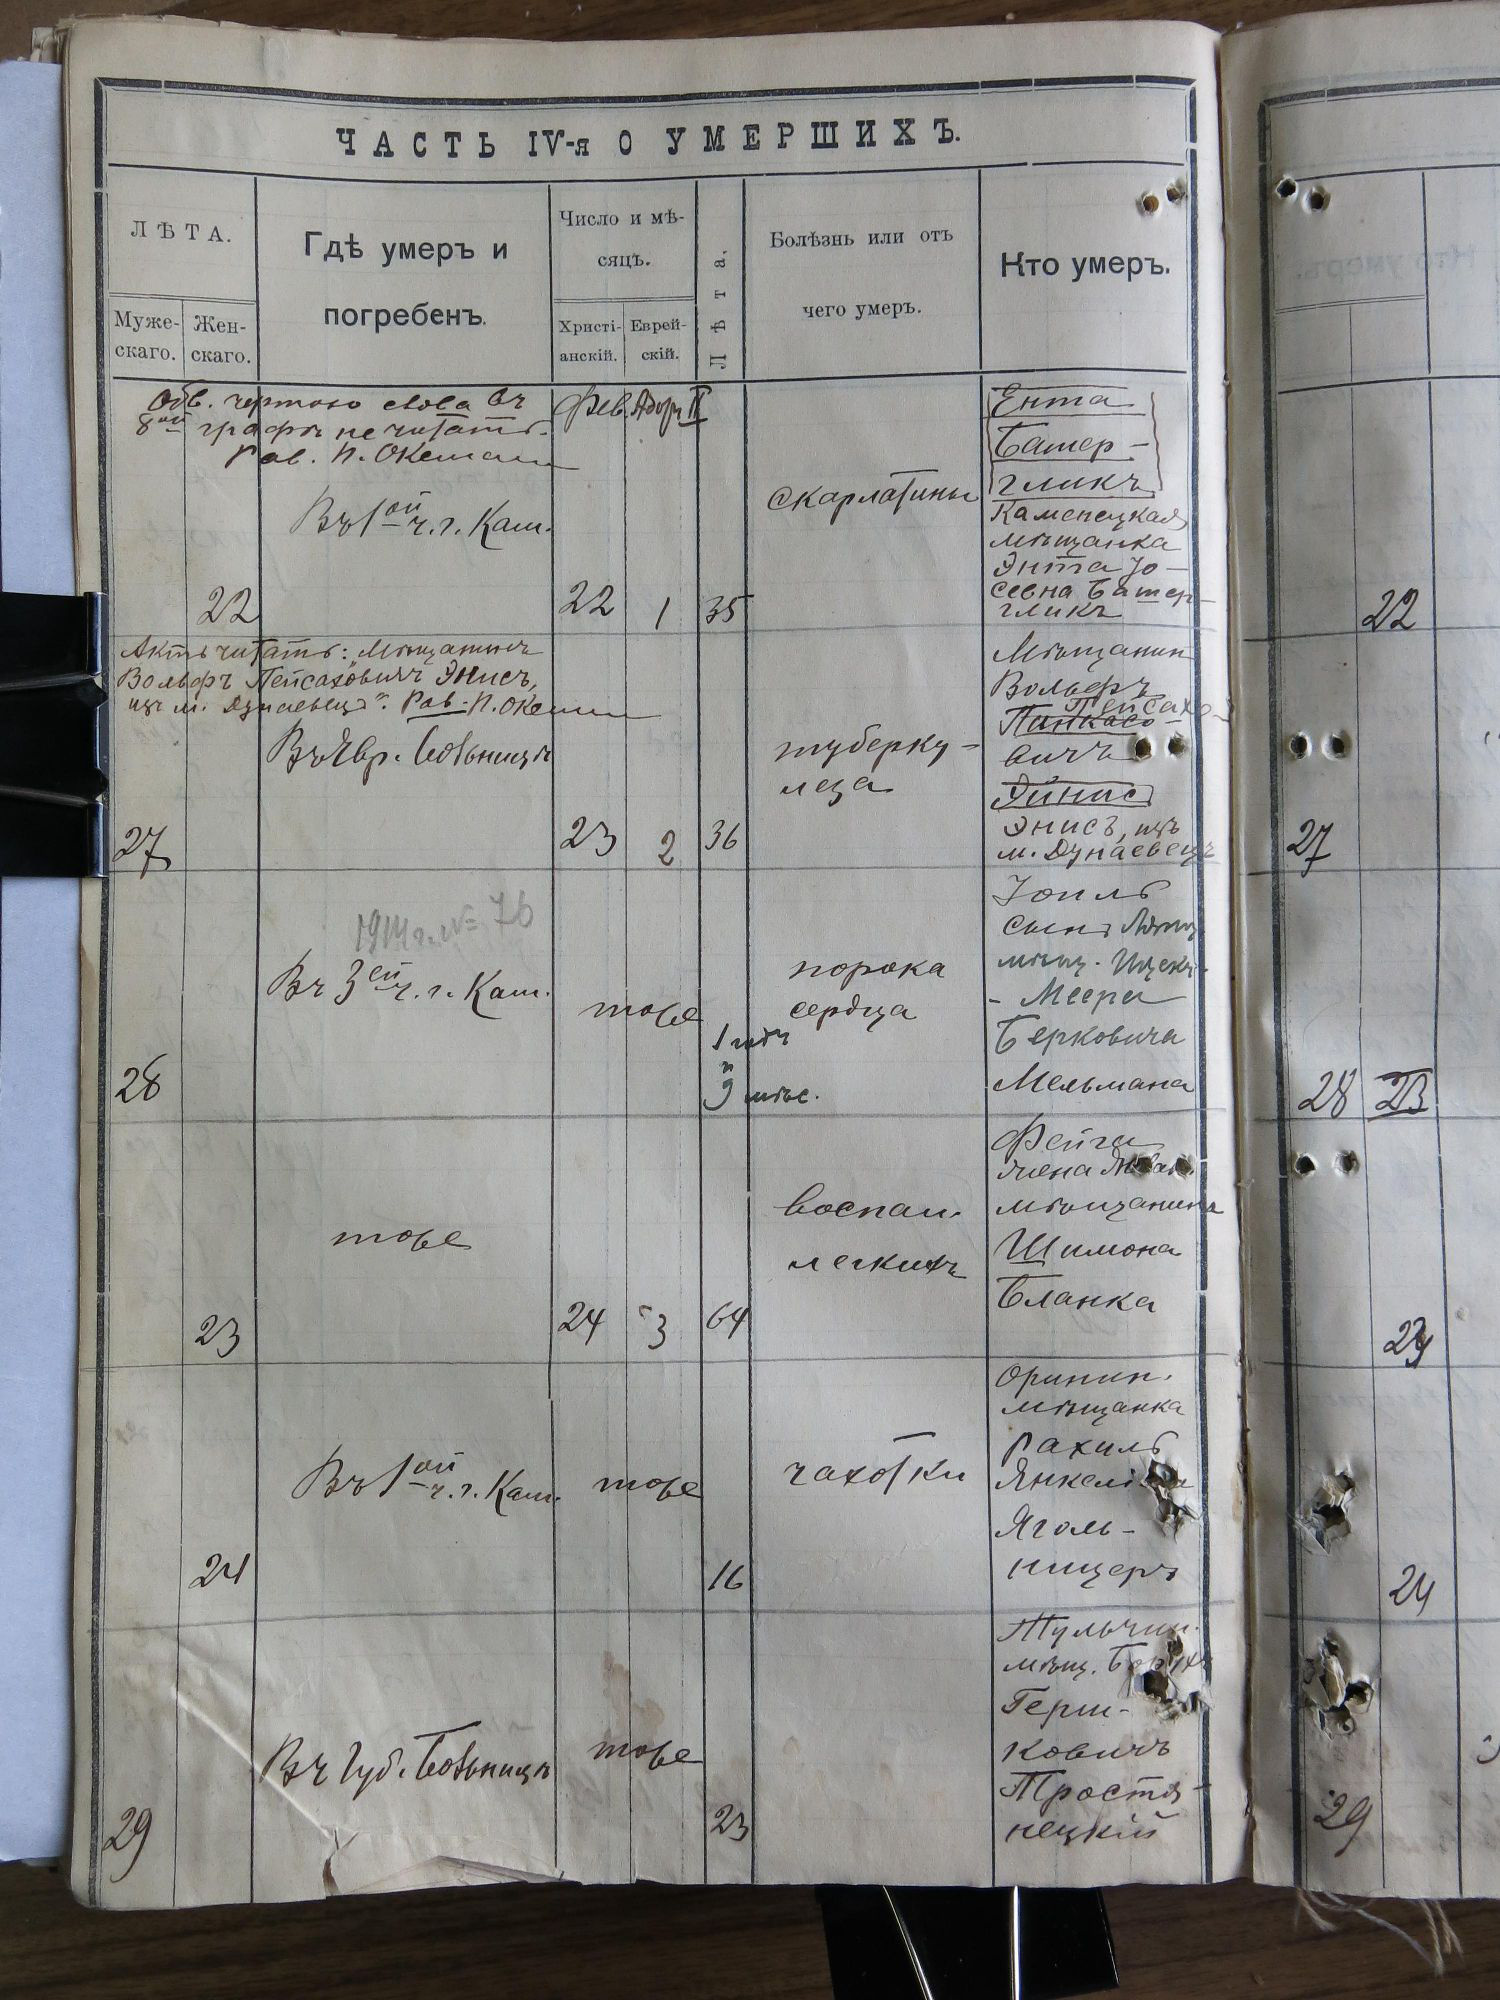 ЧАСТЬ IV-я О УМЕРШИХЪ.
ЛѢТА.
Муже-
скаго.
Жен-
скаго.
Гдѣ умеръ и
погребенъ.
Число и мѣ-
сяцъ.
Христі-
анскій.
Еврей-
скій.
Лѣта.
Болѣзнь или отъ
чего умеръ.
Кто умеръ.
Обв. чертою слова въ
8ой графѣ не читать.
Рав. П. Окешан
Фев.
Адоръ II
22
Въ 1ой ч. г. Кам.
22
1
35
скарлатины
Ента
Батер-
гликъ
Каменецкая
мѣщанка
Энта Іо-
севна Батер-
гликъ
22
Актъ читать: „Мѣщанинъ
Вольфъ Пейсаховичъ Энисъ,
изъ м. Дунаевецъ". Рав. П. Окешан
27
Въ Евр. больницѣ
23
2
36
туберку-
леза
Мѣщанин
Вольфъ
Пейсахо-
Пинкасо-
вичъ
Эйнис
Энисъ, изъ
м. Дунаевецъ
27
1914 г. № 76
28
Въ 3ей ч. г. Кам.
тоже
1 годъ
и
9 мѣс.
порока
сердца
Іоиль
сынъ
мѣщ. Ицекъ-
- Меера
Берковича
Мельмана
28
23
23
тоже
24
3
64
воспал.
легкихъ
Фейга
жена
мѣщанина
Шимона
Бланка
23
24
Въ 1ой ч. г. Кам.
тоже
16
чахотки
Оринин.
мѣщанка
Рахиль
Янкелевна
Яголь-
ницеръ
24
29
Въ Губ. больницѣ
тоже
23
Тульчин.
мѣщ. Борухъ
Герш-
ковичъ
Тростя-
нецкій
29